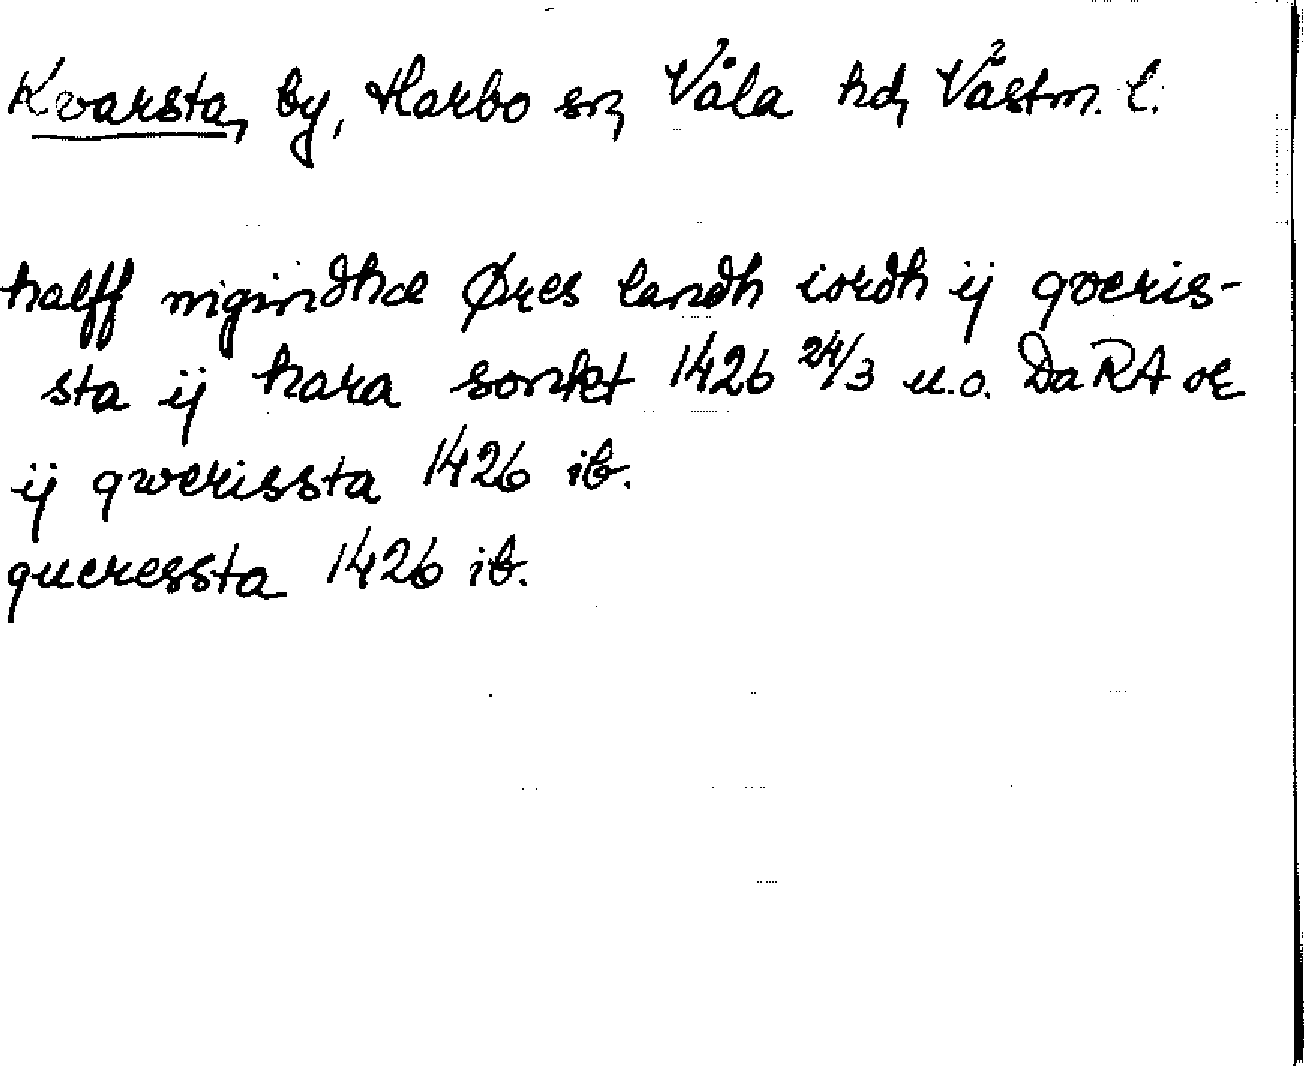 Kvarsta, by, Harbo sn, Våla hd, Västm. l.
halff nigindhæ Øres landh iordh ij qveris-
sta ij hara sonket 1426 24/3 u.o. Da RA or
ij qwerissta 1426 ib.
queressta 1426 ib.